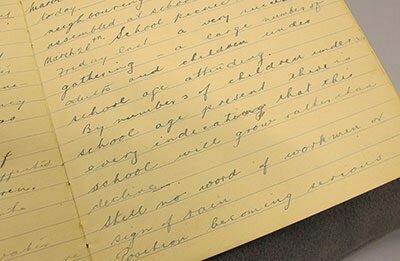 today.
neighbouring
assembled at school
March 21st. School Picnic
today last - a very
gathering - a large number of
adults and children under
school age attending.
By numbers of children under
school age present there is
every indication that this
school will grow rather than
decline.
Still no word of workmen or
sign of rain
Position becoming serious